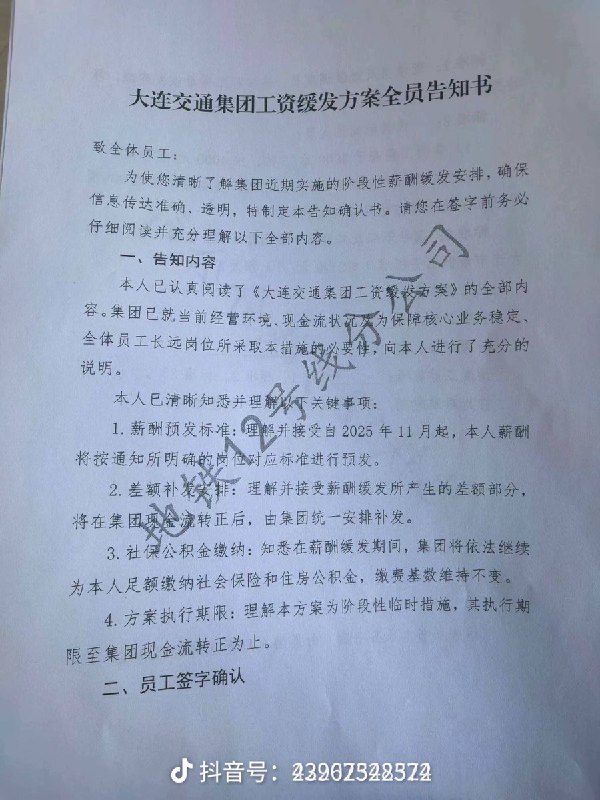 大连交通集团工资缓发方案全员告知书
致全体员工：
为使您清晰了解集团近期实施的阶段性薪酬缓发安排，确保
信息传达准确、透明，特制定本告知确认书。请您在签字前务必
仔细阅读并充分理解以下全部内容。
一、告知内容
本人已认真阅读了《大连交通集团工资缓发方案》的全部内
容。集团已就当前经营环境、现金流状况及为保障核心业务稳定、
全体员工长远岗位所采取本措施的必要性，向本人进行了充分的
说明。
本人已清晰知悉并理解以下关键事项：
1. 薪酬预发标准：理解并接受自 2025 年 11 月起，本人薪酬
将按通知所明确的岗位对应标准进行预发。
2. 差额补发安排：理解并接受薪酬缓发所产生的差额部分，
将在集团现金流转正后，由集团统一安排补发。
3. 社保公积金缴纳：知悉在薪酬缓发期间，集团将依法继续
为本人足额缴纳社会保险和住房公积金，缴费基数维持不变。
4. 方案执行期限：理解本方案为阶段性临时措施，其执行期
限至集团现金流转正为止。
二、员工签字确认
地铁12号线分公司
抖音号：